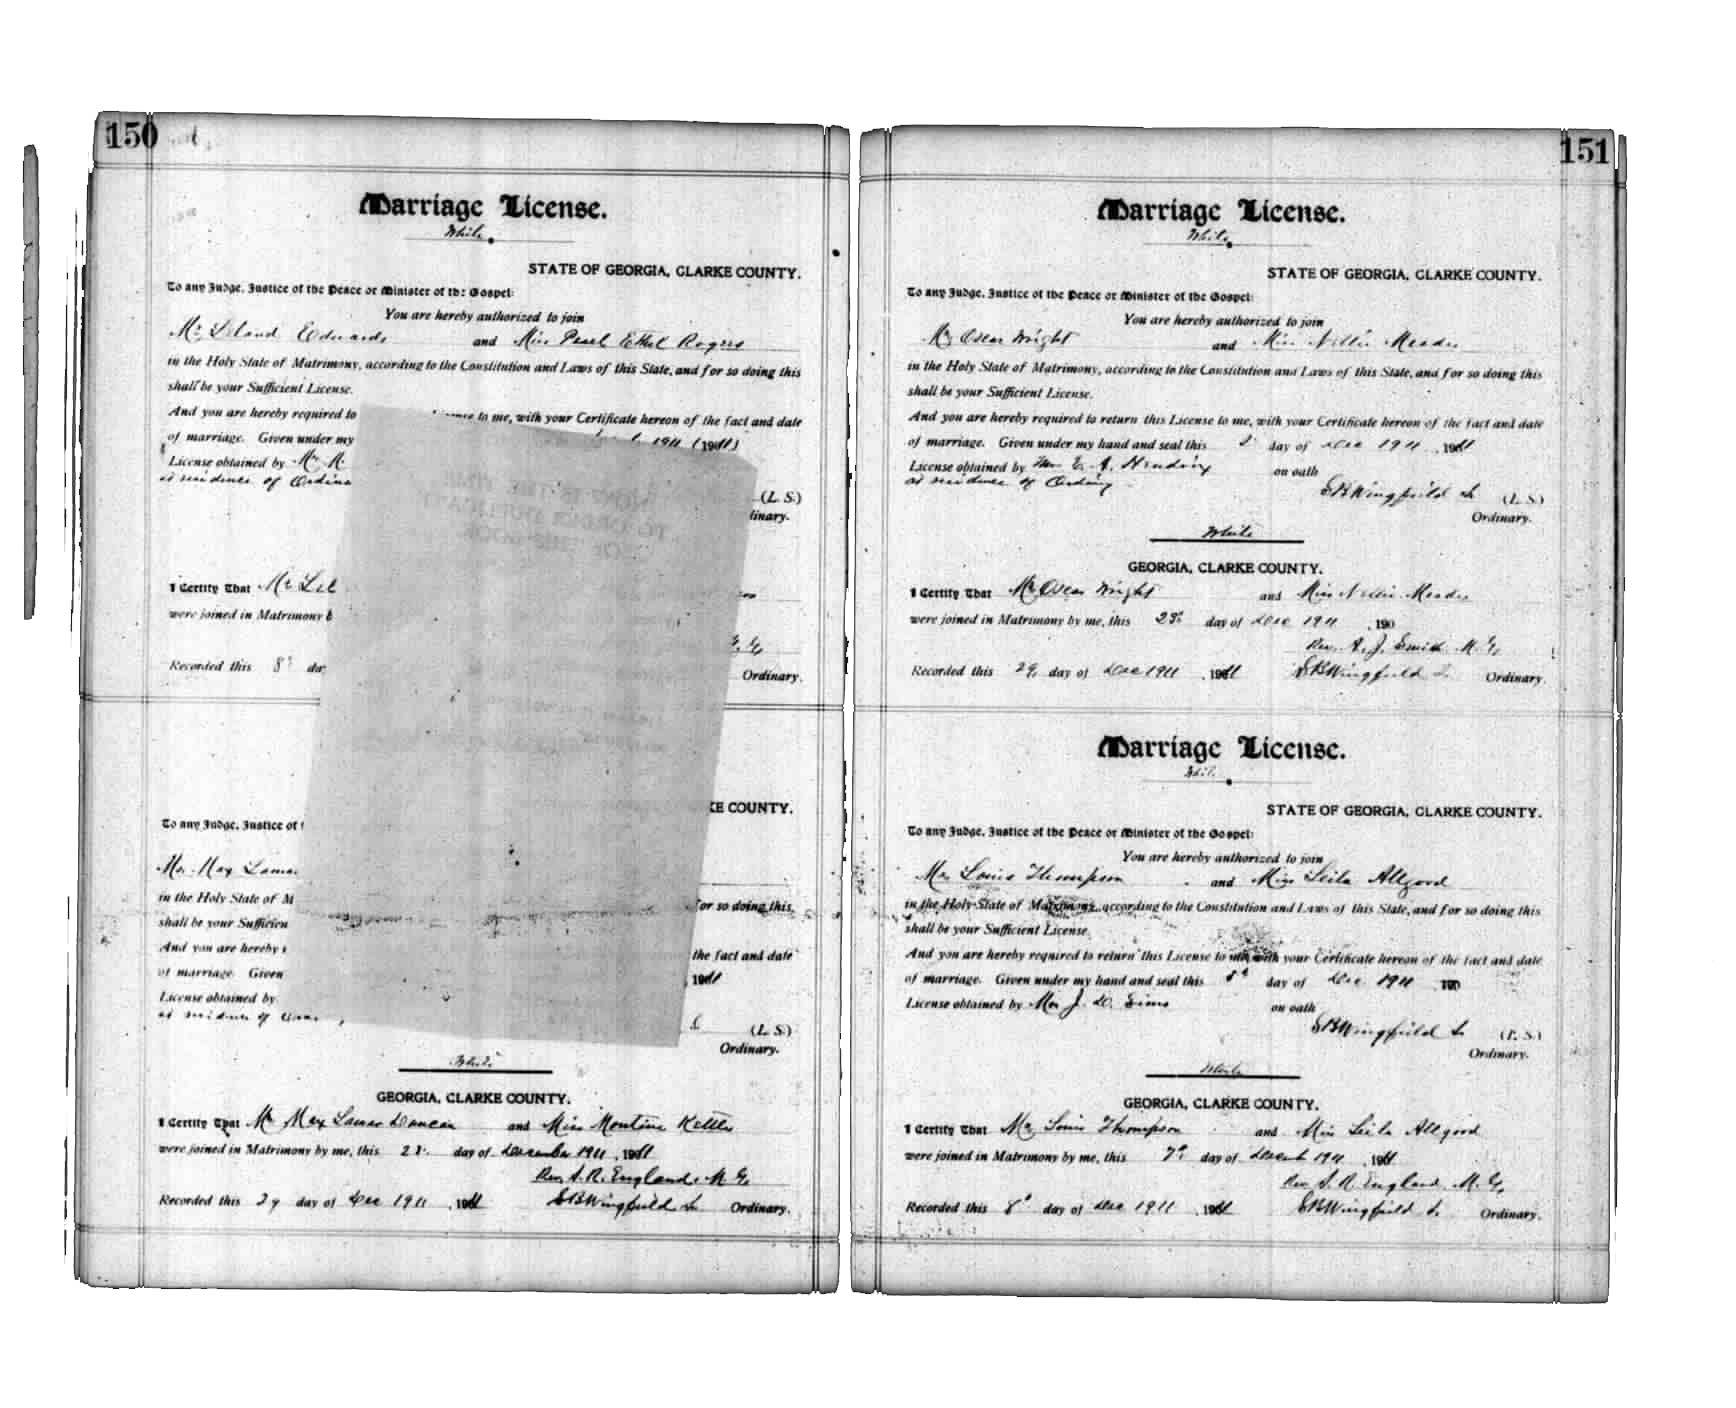 150
Marriage License.
White
STATE OF GEORGIA, CLARKE COUNTY.
To any Judge, Justice of the Peace or Minister of the Gospel:
You are hereby authorized to join
Mr Leland Edwards and Miss Pearl Ethel Rogers
in the Holy State of Matrimony, according to the Constitution and Laws of this State, and for so doing this
shall be your Sufficient License.
And you are hereby required to to me, with your Certificate hereon of the fact and date
of marriage. Given under my 1911 (1911)
License obtained by Mr
at residence of
(L. S.)
I Certify That Mr
were joined in Matrimony
Recorded this 8
Ordinary.
KE COUNTY.
To any Judge, Justice of
Mr. Max
in the Holy State of M for so doing this,
shall be your Sufficien
And you are hereby the fact and date
of marriage. Given
License obtained by
at residence of
(L. S.)
Ordinary.
White
GEORGIA, CLARKE COUNTY.
I Certify That Mr Max Lamar Duncan and Miss Montine Kettle
were joined in Matrimony by me, this day of December 1911, 1911
Rev. A. R. England. M. G.
Recorded this 29 day of Dec 1911, 1911 S B Wingfield Ordinary.
151
Marriage License.
White
STATE OF GEORGIA, CLARKE COUNTY.
To any Judge, Justice of the Peace or Minister of the Gospel:
You are hereby authorized to join
Mr Oscar Wright and Miss Nellie Meader
in the Holy State of Matrimony, according to the Constitution and Laws of this State, and for so doing this
shall be your Sufficient License.
And you are hereby required to return this License to me, with your Certificate hereon of the fact and date
of marriage. Given under my hand and seal this day of Dec 1911, 1911
License obtained by on oath
at residence of
S B Wingfield (L. S.)
Ordinary.
White
GEORGIA, CLARKE COUNTY.
I Certify That Mr Oscar Wright and Miss Nellie Meader
were joined in Matrimony by me, this day of Dec 1911, 190
Rev. A. J. Smith M. G.
Recorded this 29 day of Dec 1911, 1911 S B Wingfield Ordinary.
Marriage License.
STATE OF GEORGIA, CLARKE COUNTY.
To any Judge, Justice of the Peace or Minister of the Gospel:
You are hereby authorized to join
Mr Louis Thompson and Miss Leila Allgood
in the Holy State of Matrimony, according to the Constitution and Laws of this State, and for so doing this
shall be your Sufficient License.
And you are hereby required to return this License to me, with your Certificate hereon of the fact and date
of marriage. Given under my hand and seal this day of Dec 1911, 190
License obtained by Mr J. D. Sims on oath
S B Wingfield (L. S.)
Ordinary.
White
GEORGIA, CLARKE COUNTY.
I Certify That Mr Louis Thompson and Miss Leila Allgood
were joined in Matrimony by me, this 7 day of 1911, 1911
Rev. A. R. England. M. G.
Recorded this 8 day of Dec 1911, 1911 S B Wingfield Ordinary.